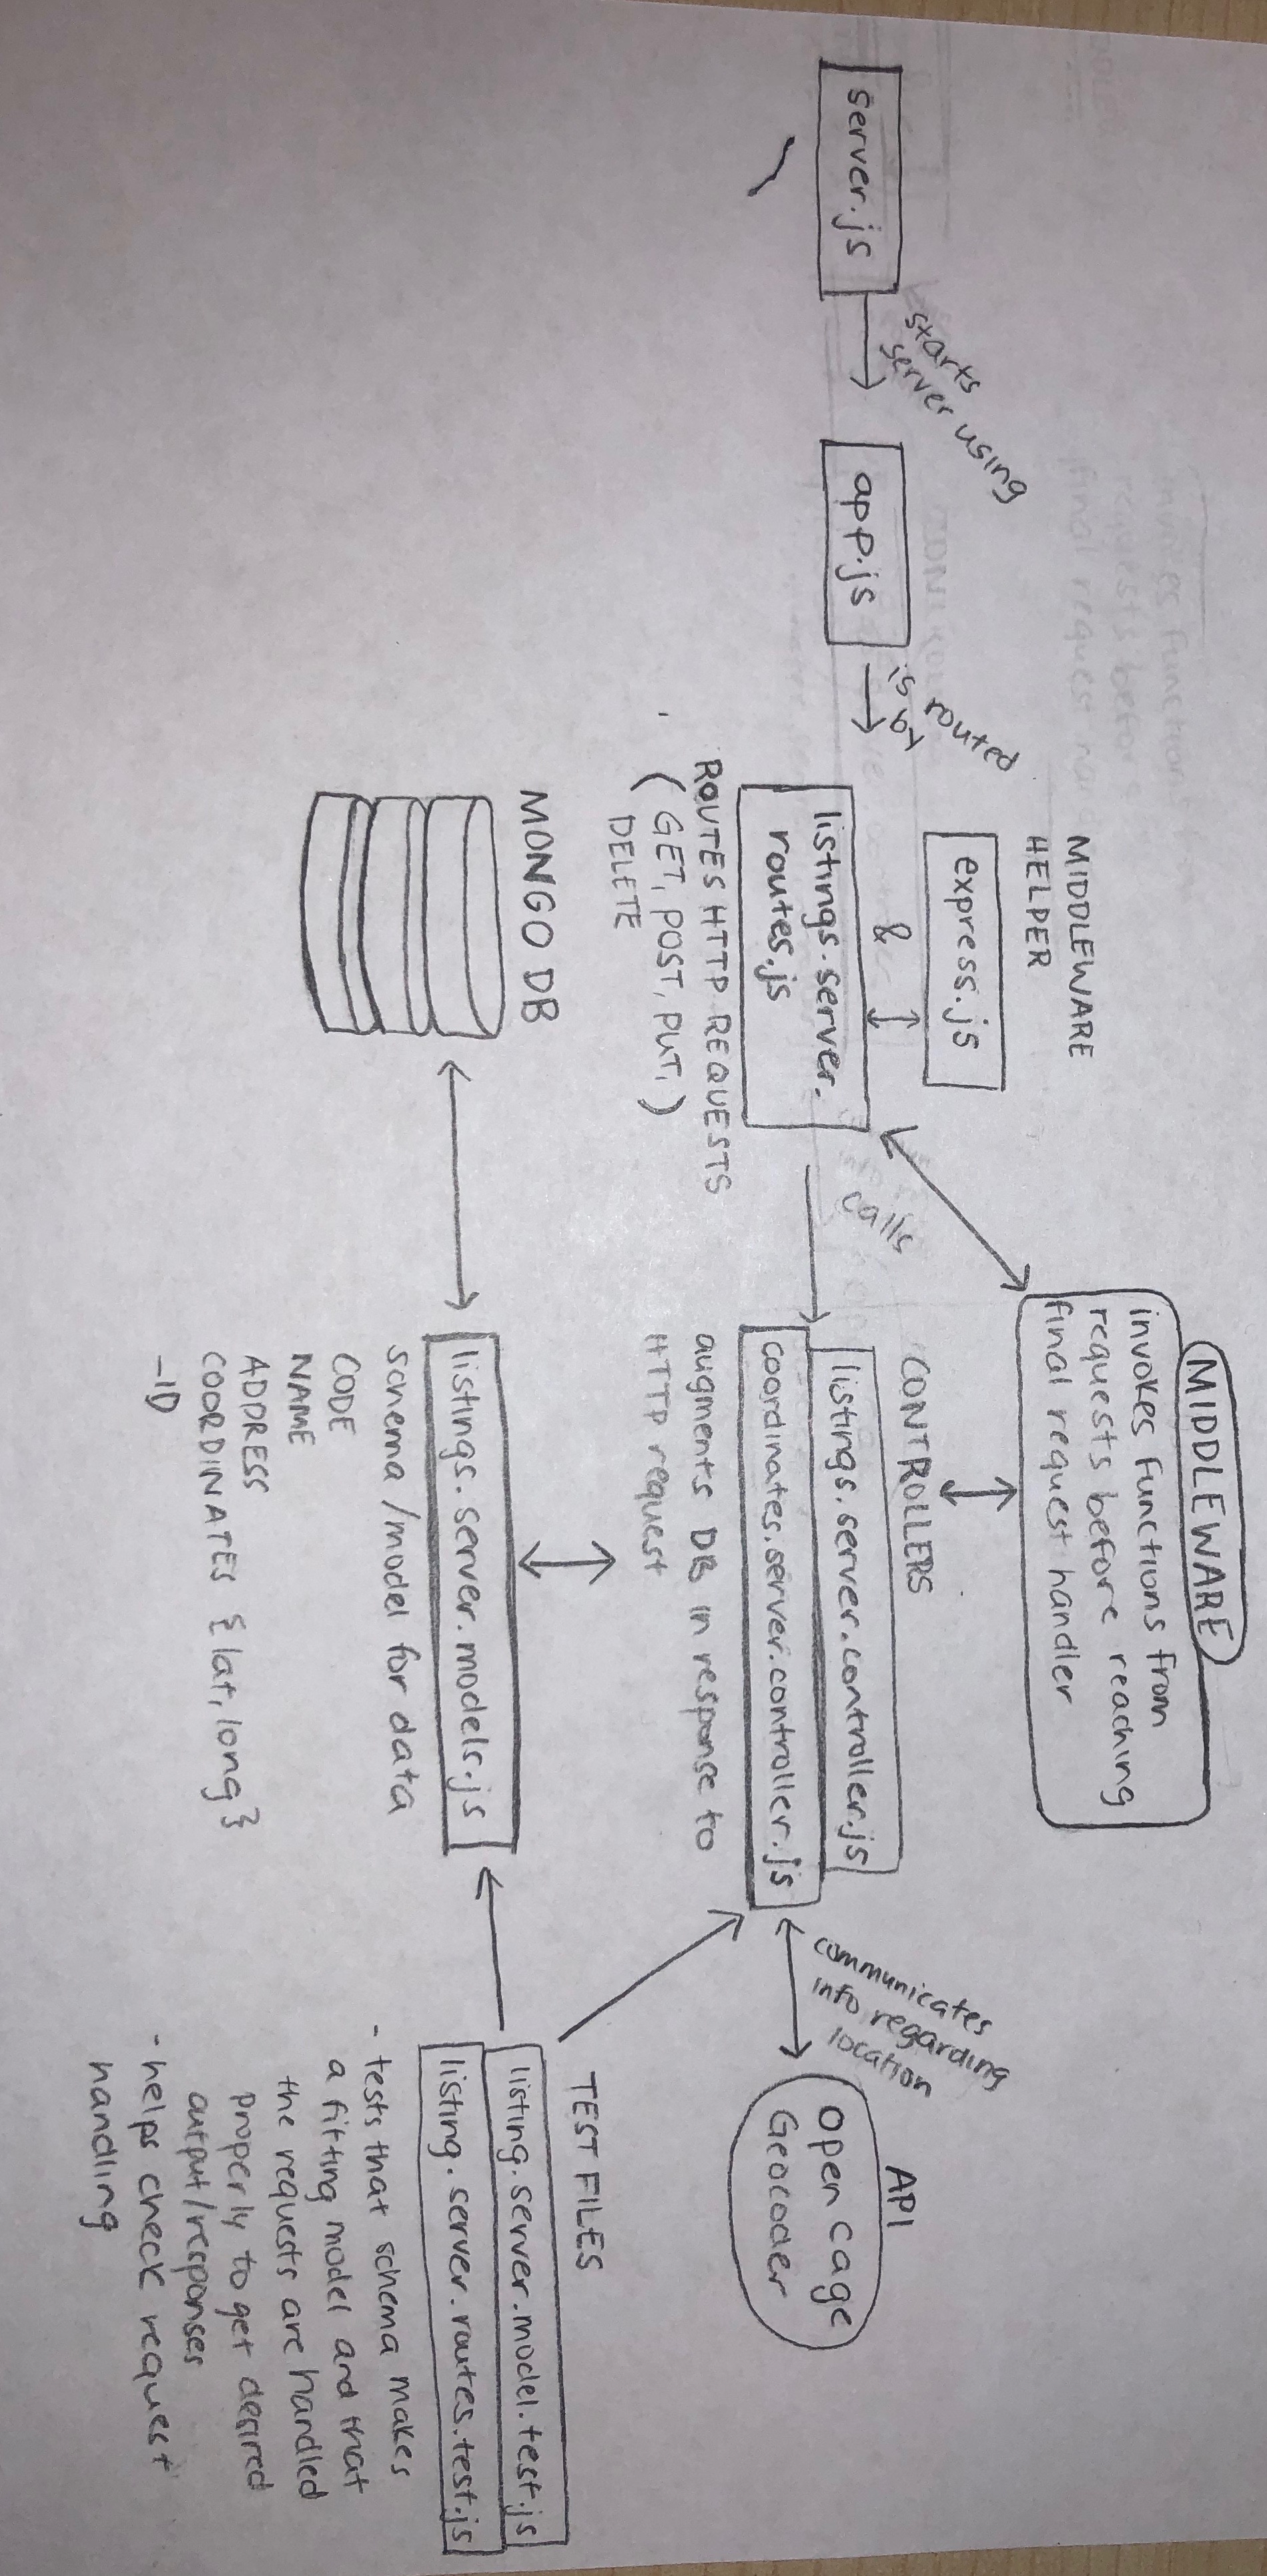 server.js
starts
server using
app.js
is routed
by
MIDDLEWARE
HELPER
express.js
&
listings.server.
routes.js
ROUTES HTTP REQUESTS
(GET, POST, PUT,)
DELETE
calls
MIDDLEWARE
invokes functions from
requests before reaching
final request handler
CONTROLLERS
listings.server.controller.js
coordinates.server.controller.js
augments DB in response to
HTTP request
communicates
info regarding
location
API
Open Cage
Geocoder
MONGO DB
listings.server.models.js
schema/model for data
CODE
NAME
ADDRESS
COORDINATES {lat, long}
_ID
TEST FILES
listing.server.model.test.js
listing.server.routes.test.js
- tests that schema makes
a fitting model and that
the requests are handled
properly to get desired
output/responses
- helps check request
handling